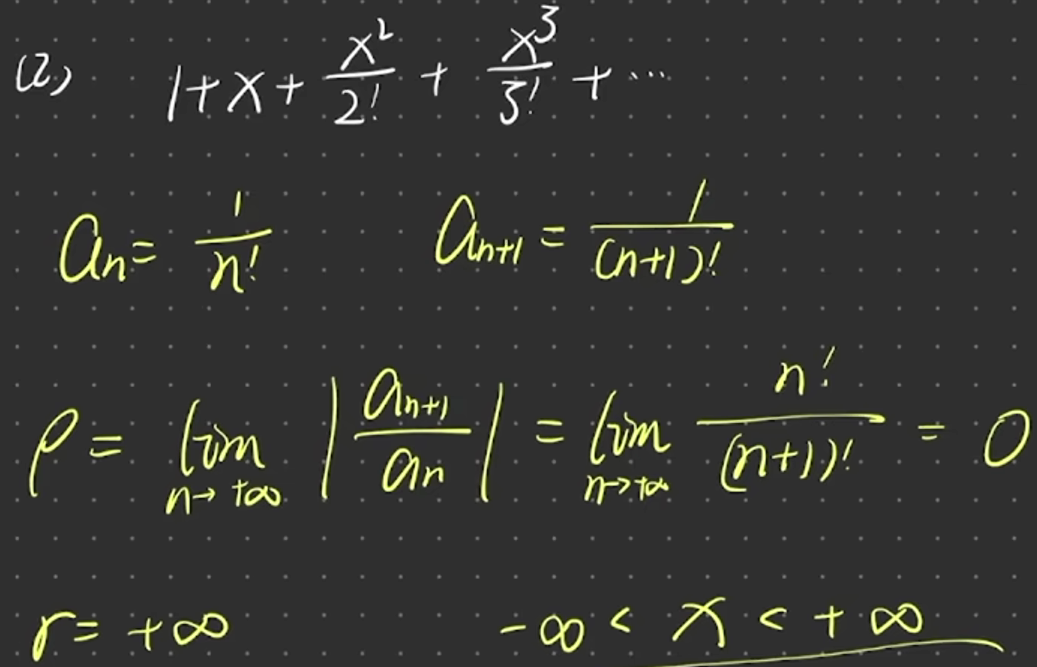 (2) 1+x+\frac{x^2}{2!}+\frac{x^3}{3!}+⋯
a_n=\frac{1}{n!} a_{n+1}=\frac{1}{(n+1)!}
ρ=\lim_{n→+∞}|\frac{a_{n+1}}{a_n}|=\lim_{n→+∞}\frac{n!}{(n+1)!}=0
r=+∞ -∞<x<+∞